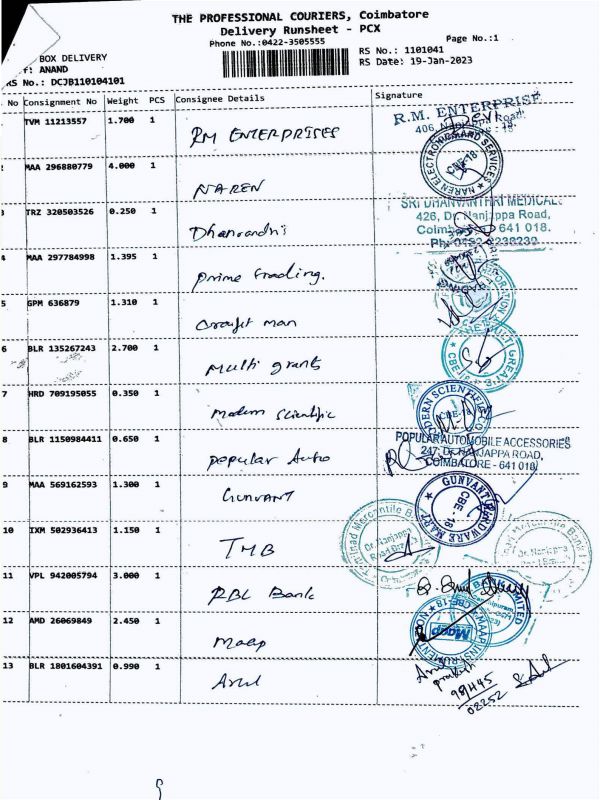 THE PROFESSIONAL COURIERS, Coimbatore
Delivery Runsheet - PCX
Phone No.:0422-3505555
Page No.:1
RS No.: 1101041
RS Date: 19-Jan-2023
BOX DELIVERY
: ANAND
RS No.: DCJB110104101
No Consignment No Weight PCS Consignee Details Signature
TVM 11213557 1.700 1 RM ENTERPRISES
R.M. ENTERPRISE
406, Nanjappa Road,
MAA 296880779 4.000 1 NAREN
NAREN ELECTRONIC AND SERVICES
CBE-18
3 TRZ 320503526 0.250 1 Dhanvandhi
SRI DHANVANTHRI MEDICAL
426, Dr. Nanjappa Road,
Coimbatore 641 018.
Ph: 0422 2238239
4 MAA 297784998 1.395 1 Prime trading.
5 GPM 636879 1.310 1 Craft man
6 BLR 135267243 2.700 1 Multi grants
CBE 18
7 HRD 709195055 0.350 1 Modern Scientific
MODERN SCIENTIFIC CO
CBE-18
8 BLR 1150984411 0.650 1 Popular Auto
POPULAR AUTOMOBILE ACCESSORIES
247, Dr. NANJAPPA ROAD,
COIMBATORE - 641 018
9 MAA 569162593 1.300 1 GUNVANT
GUNVANT HARDWARE MART
CBE - 18
10 IXM 502936413 1.150 1 TMB
Tamilnad Mercantile Bank
Dr. Nanjappa
Road Brz
Mercantile Bank
Dr. Nanjappa
11 VPL 942005794 3.000 1 RBL Bank
BANK LIMITED
12 AMD 26069849 2.450 1 Maap
MAAP INSTRUMENTATION
Maap
CBE-18
13 BLR 1801604391 0.990 1 Arul
Arul
prakash
98445
02252